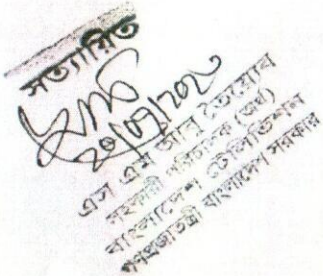 সত্যায়িত
এস এম আবু তৈয়ব
সহকারী পরিচালক (অর্থ)
বাংলাদেশ টেলিভিশন
গণপ্রজাতন্ত্রী বাংলাদেশ সরকার